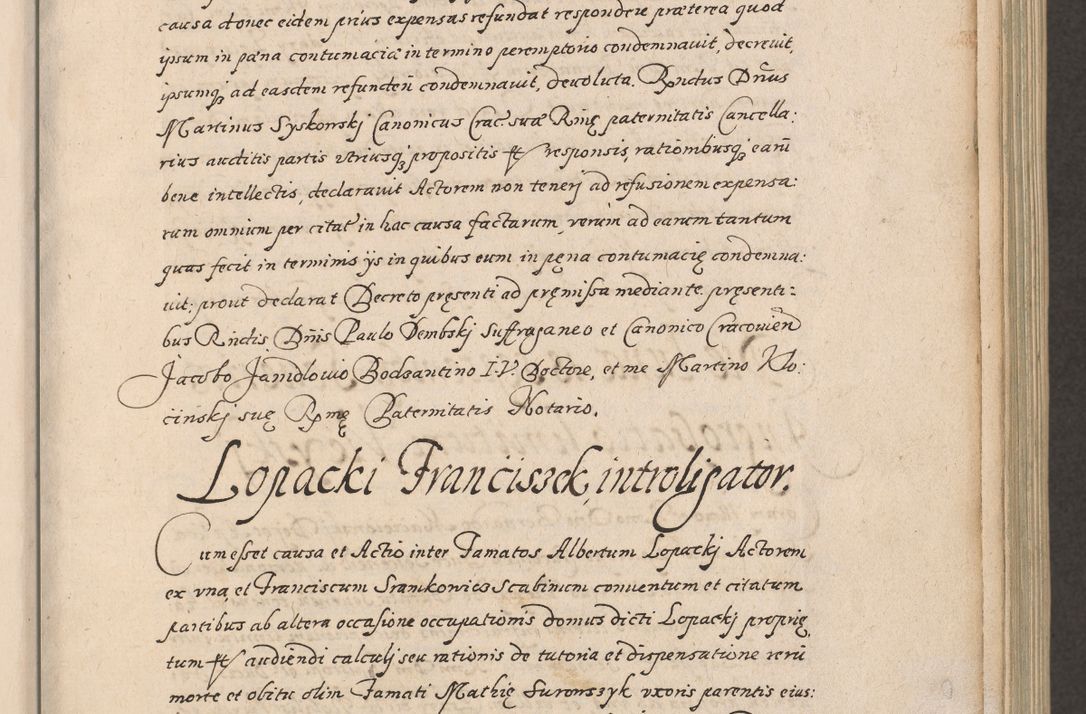 causa donec eidem prius expensas refundat respondere præterea quod
ipsum in pæna contumaciæ in termino peremptorio condemnavit, decrevit,
ipsumq̨ ad easdem refunden̄ condemnavit, devoluta. Rndus Dn̄us
Martinus Syskowskj Canonicus Crac: suæ Rmę paternitatis Cancella:
rius auditis partis utriusq̨ propositis et responsis, rationibusq̨ earū
bene intellectis, declaravit Actorem non tenerj ad refusionem expensa:
rum omnium per citat̄ in hac causa factarum, verùm ad earum tantum
quas fecit in terminis ijs in quibus eum in pęna contumacię condemna:
vit: prout declarat Decreto pręsenti ad pręmissa mediante. pręsenti:
bus Rndis Dn̄is Paulo Dembskj Suffraganeo et Canonico Cracovien̄
Jacobo Janidlovio Bodzantino I.V. Doctore, et me Martino Klo:
cinskj suę Rmę Paternitatis Notario.
Lopacki Franciszek, introligator.
Cum esset causa et Actio inter Famatos Albertum Lopackj Actorem
ex una, et Franciscum Sramkowicz Scabinum conventum et citatum
partibus ab altera occasione occupationis domus dicti Lopackj proprię,
tum et audiendi calculj seu rationis de tutoria et dispensatione rerū
morte et obitu olim Famati Mathię Surowszyk uxoris parentis eius: